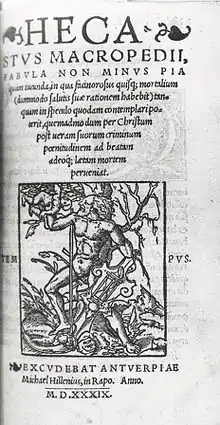 HECA-
STVS MACROPEDII,
FABVLA NON MINVS PIA
quàm iucunda, in qua facinorosus quisq; mortalium
(dummodo salutis suæ rationem habebit) tan-
quam in speculo quodam contemplari po-
terit, quemadmodum per Christum
post ueram suorum criminum
pœnitudinem ad beatam
adeoq; lætam mortem
perueniat.
TEM PVS.
EXCVDEBAT ANTVERPIAE
Michael Hillenius, in Rapo. Anno.
M. D. XXXIX.